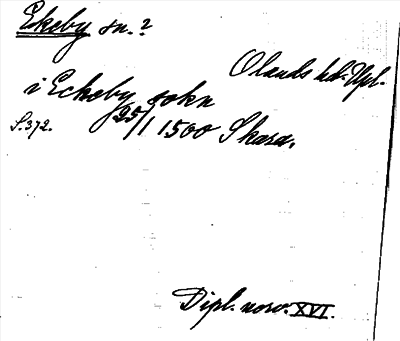 Ekeby sn.?
Olands hd. Upl.
i Eckeby sokn
S. 372. 25/1 1500 Skara.
Dipl. norv. XVI.